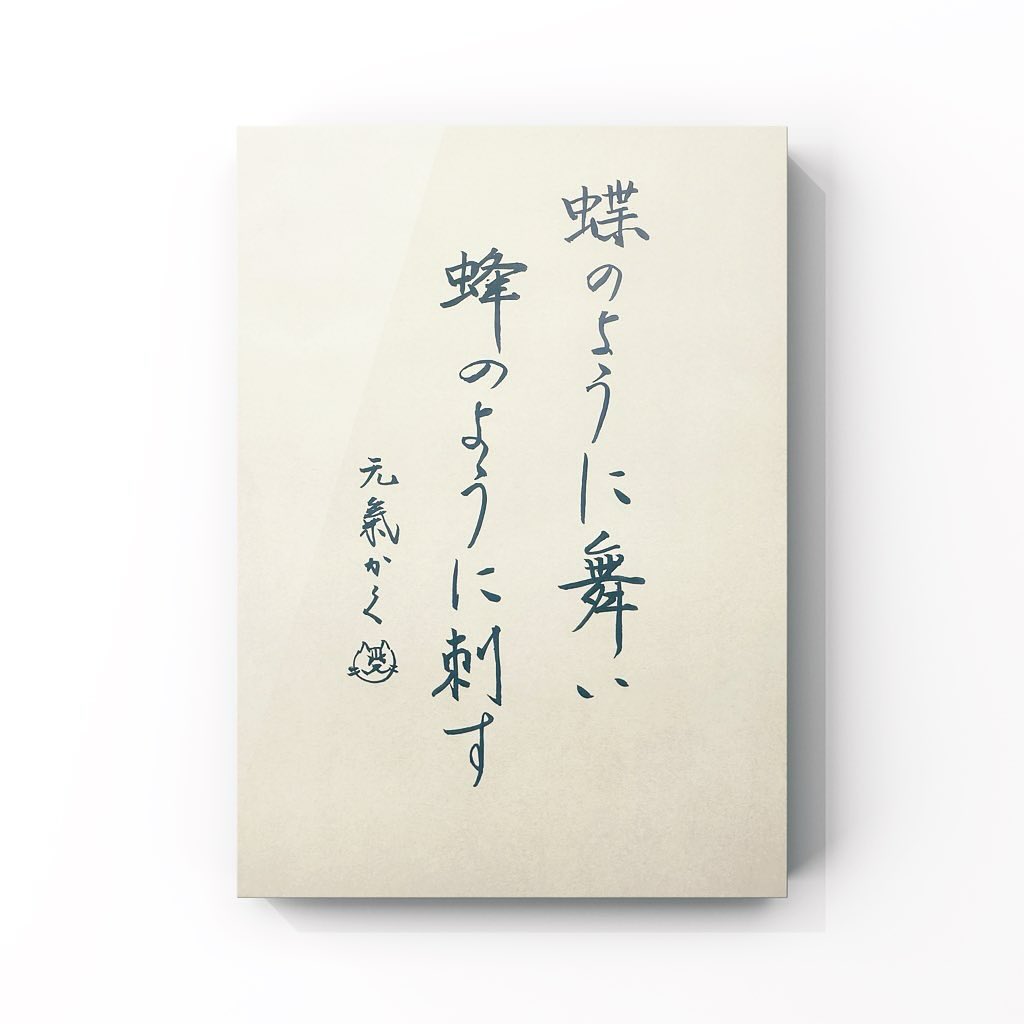 蝶のように舞い
蜂のように刺す
元氣かく